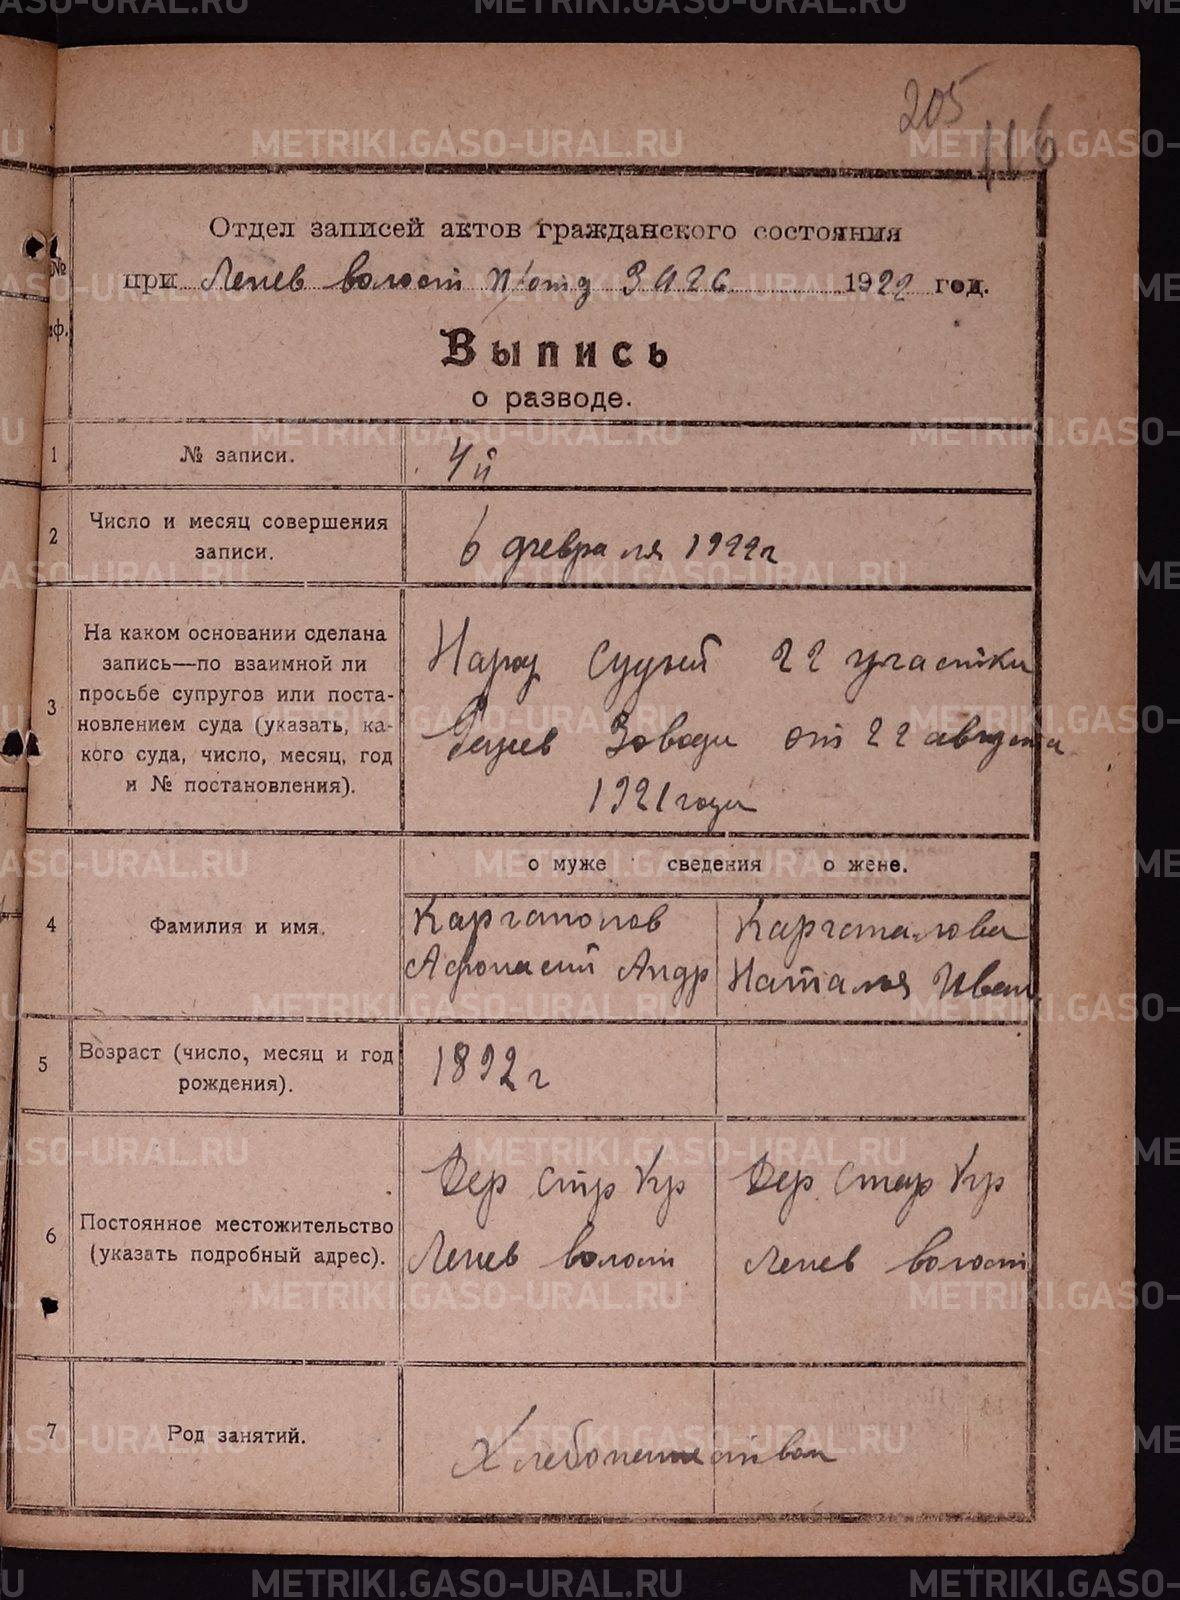 METRIKI.GASO-URAL.RU
205
116
Отдел записей актов гражданского состояния
при Лепев волост п/отд ЗАГС 1922 год.
№
гр.
Выпись
о разводе.
1 № записи. 4й
2 Число и месяц совершения
записи.
6 февраля 1922 г
3 На каком основании сделана
запись—по взаимной ли
просьбе супругов или поста-
новлением суда (указать, ка-
кого суда, число, месяц, год
и № постановления).
Народ Судьей 22 участка
Завода от 22 августа
1921 года
о муже сведения о жене.
4 Фамилия и имя.
Каргаполов
Афонасий Андр
Каргаполова
Наталья Иван
5 Возраст (число, месяц и год
рождения).
1892 г
6 Постоянное местожительство
(указать подробный адрес).
Дер Стар Кр
Лепев волост
Дер Стар Кр
Лепев волост
7 Род занятий.
Хлебопашеством